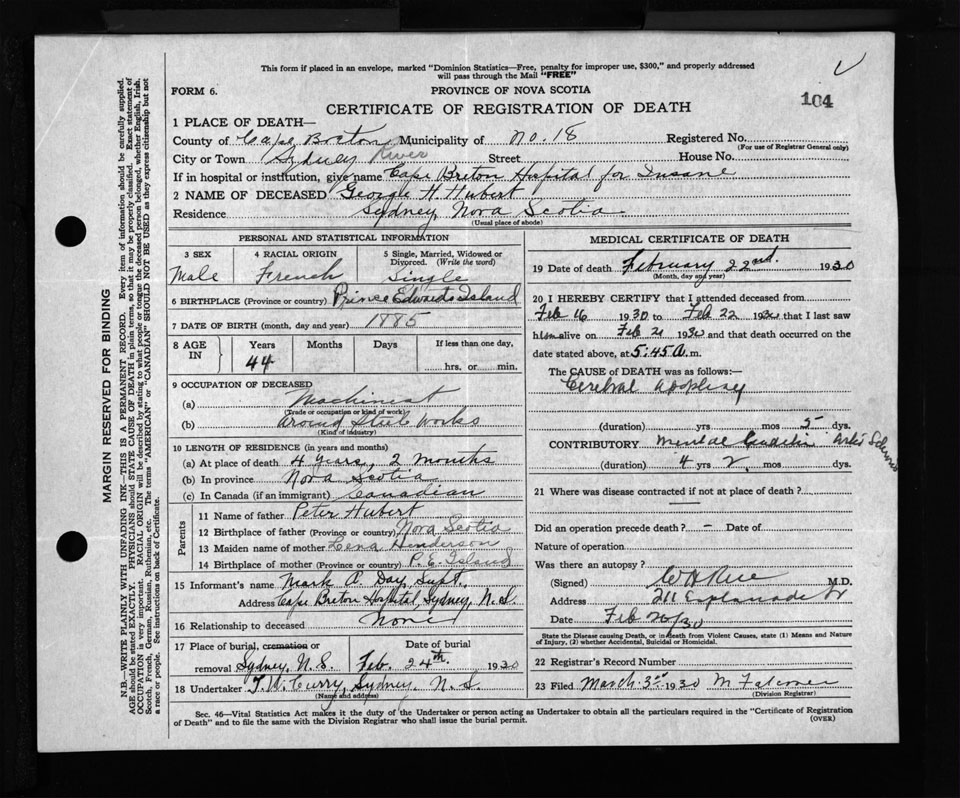 This form if placed in an envelope, marked "Dominion Statistics—Free, penalty for improper use, $300," and properly addressed
will pass through the Mail "FREE"
FORM 6.
PROVINCE OF NOVA SCOTIA
104
CERTIFICATE OF REGISTRATION OF DEATH
1 PLACE OF DEATH—
County of Cape Breton Municipality of No. 18 Registered No.
(For use of Registrar General only)
City or Town Sydney River Street House No.
If in hospital or institution, give name Cape Breton Hospital for Insane
2 NAME OF DECEASED George H Hubert
Residence Sydney, Nova Scotia
(Usual place of abode)
PERSONAL AND STATISTICAL INFORMATION
3 SEX
Male
4 RACIAL ORIGIN
French
5 Single, Married, Widowed or
Divorced. (Write the word)
Single
6 BIRTHPLACE (Province or country) Prince Edwards Island
7 DATE OF BIRTH (month, day and year) 1885
8 AGE IN
Years
44
Months
Days
If less than one day,
hrs. or min.
9 OCCUPATION OF DECEASED
(a) Machinest
(Trade or occupation or kind of work)
(b) around Steel Works
(Kind of industry)
10 LENGTH OF RESIDENCE (in years and months)
(a) At place of death 4 years, 2 months
(b) In province Nova Scotia
(c) In Canada (if an immigrant) Canadian
Parents
11 Name of father Peter Hubert
12 Birthplace of father (Province or country) Nova Scotia
13 Maiden name of mother Lena Henderson
14 Birthplace of mother (Province or country) P. E. Island
15 Informant's name Mark A. Day, Supt.
Address Cape Breton Hospital, Sydney, N.S.
16 Relationship to deceased None
17 Place of burial, cremation or
removal Sydney, N.S.
Date of burial
Feb. 24th. 1930
18 Undertaker T.W. Curry, Sydney, N.S.
(Name and address)
MEDICAL CERTIFICATE OF DEATH
19 Date of death February 22nd. 1930
(Month, day and year)
20 I HEREBY CERTIFY that I attended deceased from
Feb 16 1930 to Feb 22 1930 that I last saw
him alive on Feb 21 1930 and that death occurred on
date stated above, at 5:45 A. m.
The CAUSE OF DEATH was as follows:
Cerebral
(duration) yrs mos 5 dys.
CONTRIBUTORY Mental
(duration) 4 yrs 2 mos dys.
21 Where was disease contracted if not at place of death?
Did an operation precede death? – Date of
Nature of operation
Was there an autopsy?
(Signed) M.D.
Address 211 Esplanade
Date Feb 26/30
State the Disease causing Death, or in death from Violent Causes, state (1) Means and Nature
of Injury, (2) whether Accidental, Suicidal or Homicidal.
22 Registrar's Record Number
23 Filed March 3rd 1930 M Falconer
Division Registrar)
Sec. 46—Vital Statistics Act makes it the duty of the Undertaker or person acting as Undertaker to obtain all the particulars required in the "Certificate of Registration
of Death" and to file the same with the Division Registrar who shall issue the burial permit.
(OVER)
MARGIN RESERVED FOR BINDING
N.B.—WRITE PLAINLY WITH UNFADING INK—THIS IS A PERMANENT RECORD. Every item of information should be carefully supplied.
AGE should be stated EXACTLY. PHYSICIANS should STATE CAUSE OF DEATH in plain terms, so that it may be properly classified. Exact statement of
OCCUPATION is very important. RACIAL ORIGIN will be described by stating to what people or tongue the deceased person belonged, whether English, Irish,
Scotch, French, German, Russian, Ruthenian, etc. The terms "AMERICAN" or "CANADIAN" SHOULD NOT BE USED as they express citizenship but not
a race or people. See instructions on back of Certificate.